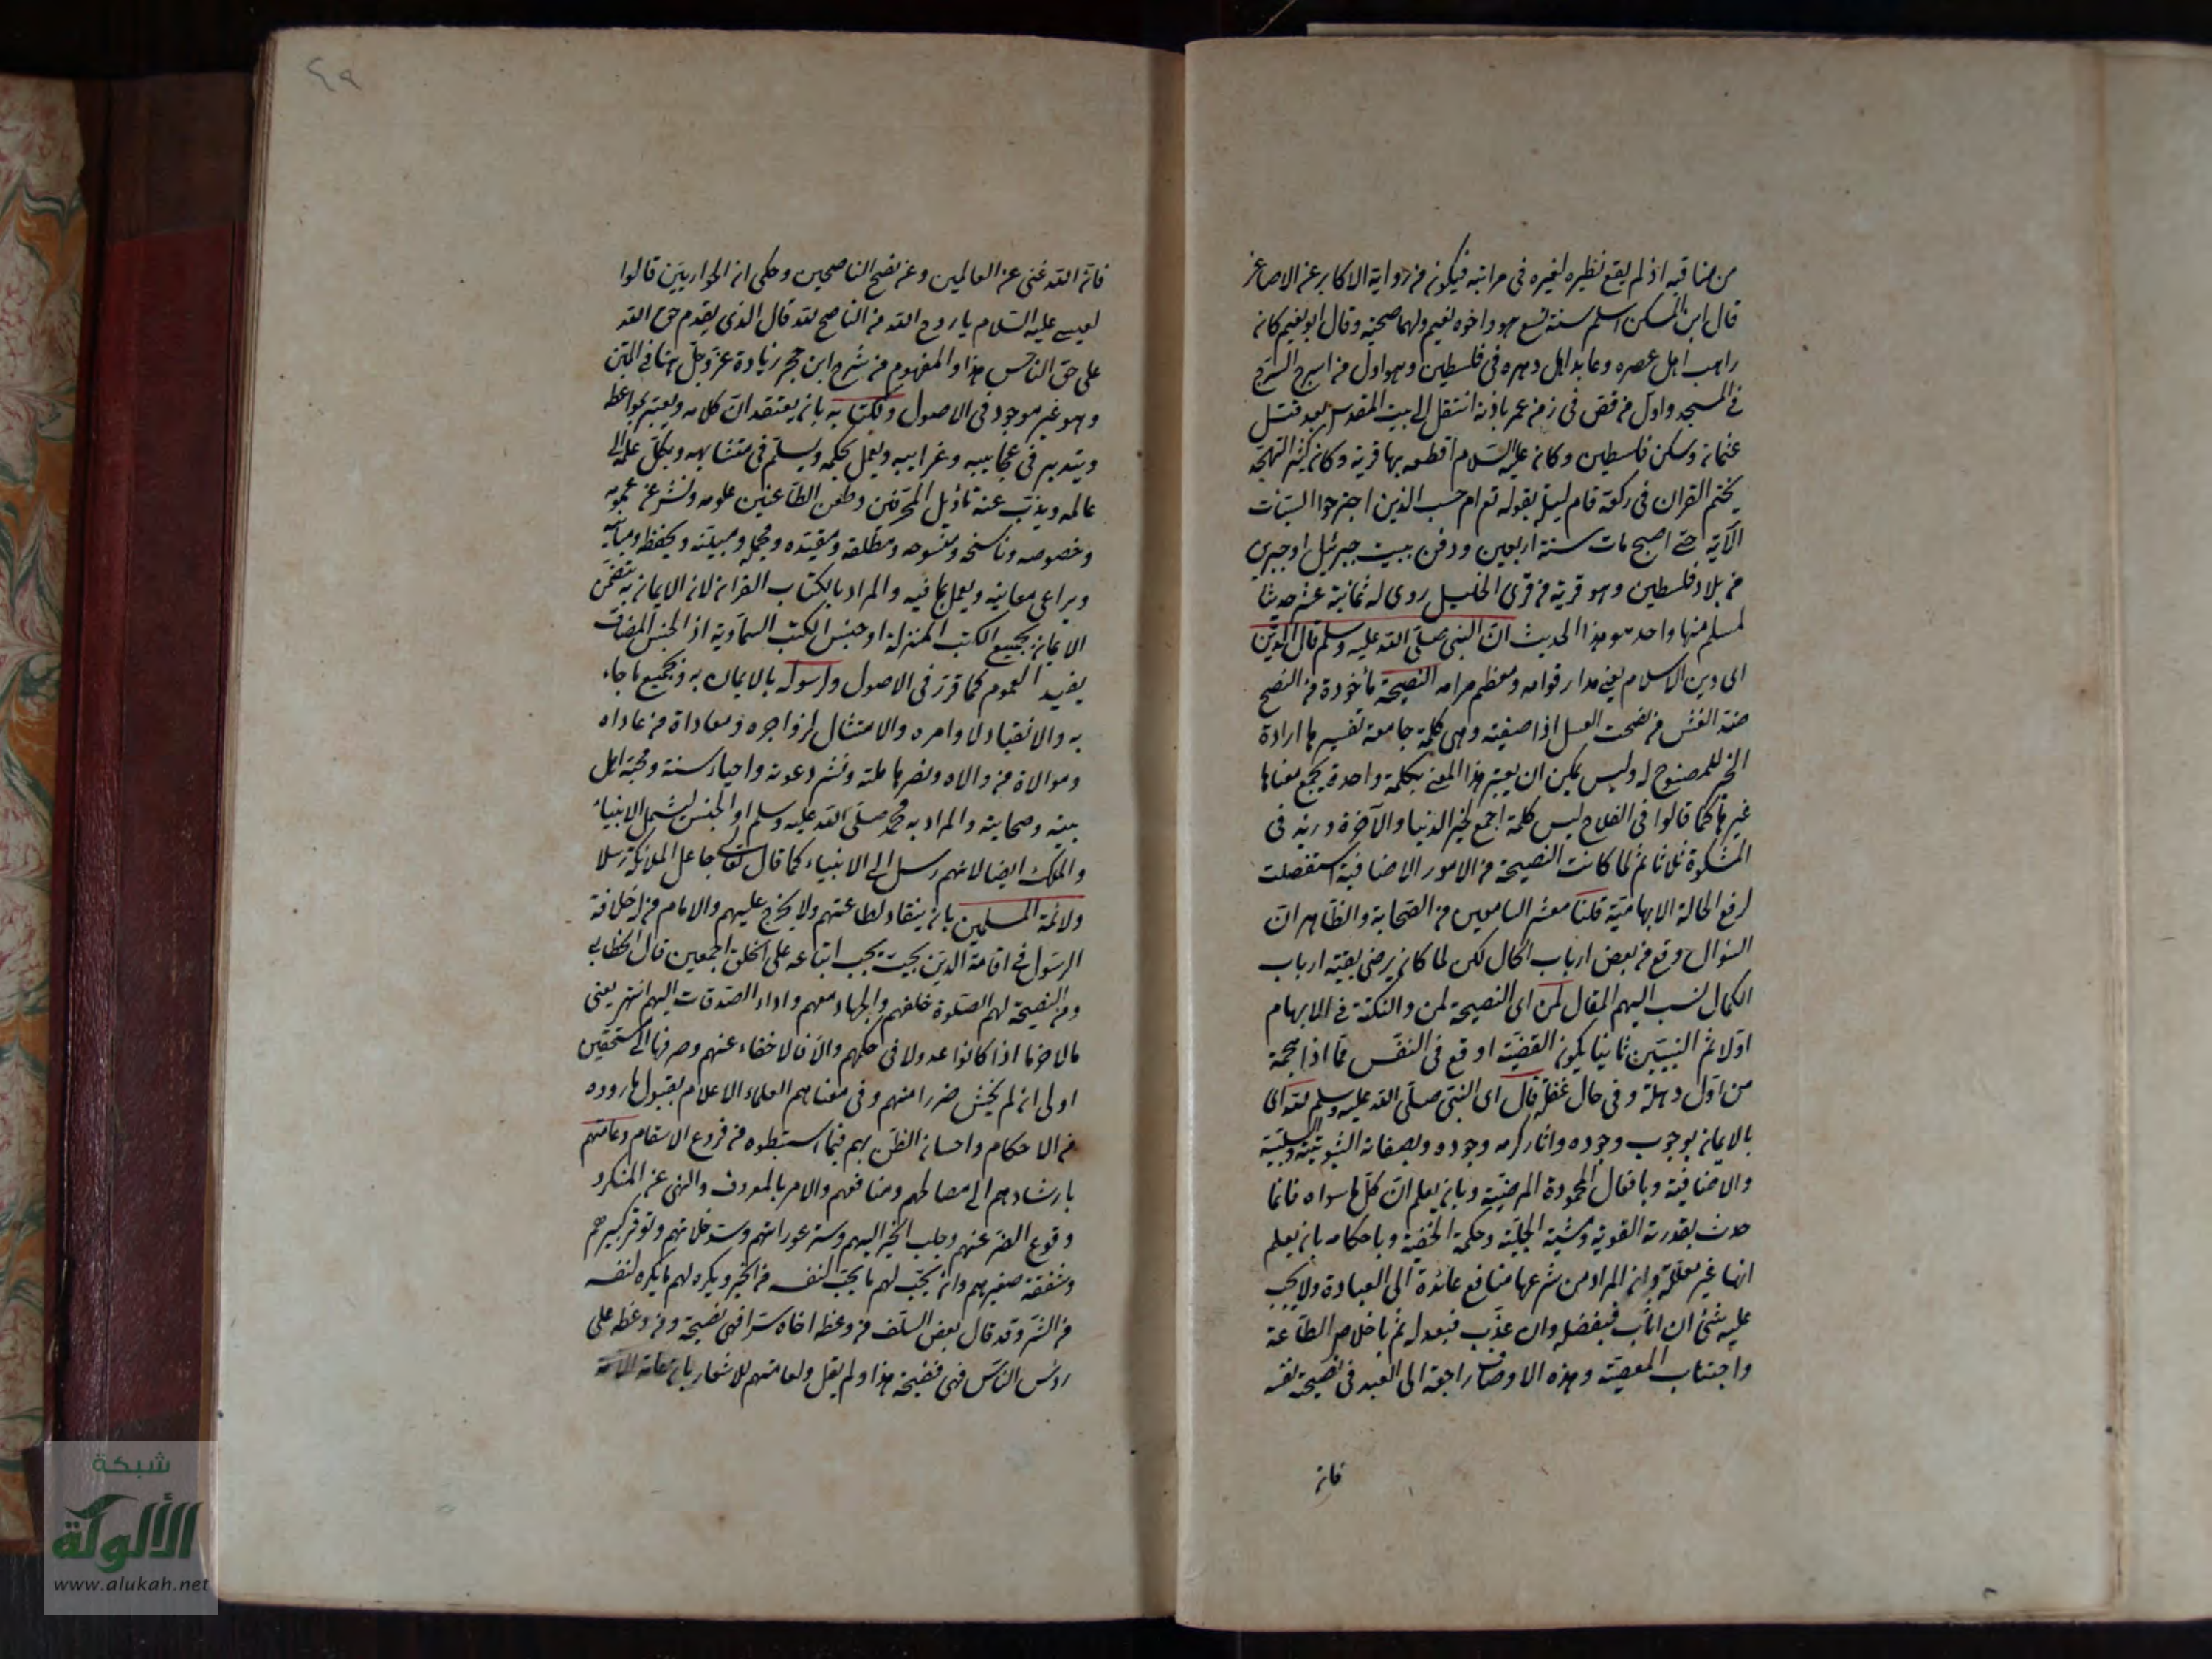 من مناقبه اذ لم يقع نظيره لغيره فى مراتبه فيكون من رواية الاكابر عن الاصاغر
قال ابن السكن اسلم سنة تسع هو واخوه نعيم ولهما صحبة وقال ابو نعيم كان
راهب اهل عصره وعابد اهل دهره فى فلسطين وهو اول من اسرج السرج
فى المسجد واول من قص فى زمن عمر باذنه انتقل الى بيت المقدس بعد قتل
عثمان وسكن فلسطين وكان عليه السلام اقطعه بها قرية وكان كثير التهجد
يختم القران فى ركعة قام ليلة بقوله تع ام حسب الذين اجترحوا السيئات
الآية حتى اصبح مات سنة اربعين ودفن ببيت جبرئيل او جبرين
من بلاد فلسطين وهو قرية من قرى الخليل روى له ثمانية عشر حديثا
لمسلم منها واحد هو هذا الحديث ان النبى صلى الله عليه وسلم قال الدين
اى دين الاسلام يعنى مدار قوامه ومعظم مرامه النصيحة ماخوذة من النصح
ضد الغش من نصحت العسل اذا صفيته وهى كلمة جامعة تفسيرها ارادة
الخير للمنصوح له وليس يمكن ان يعبر هذا المعنى بكلمة واحدة يجمع معناها
غيرها كما قالوا فى الفلاح ليس كلمة اجمع لخير الدنيا والآخرة وزيد فى
المشكوة ثلاثا ثم لما كانت النصيحة من الامور الاضافية استفصلت
لرفع الحالة الابهامية قلنا معشر السامعين من الصحابة والظاهر ان
السؤال وقع من بعض ارباب الحال لكن لما كان يرضى بقية ارباب
الكمال نسب اليهم المقال لمن اى النصيحة لمن والنكتة فى الابهام
اولا ثم التبيين ثانيا يكون القضية اوقع فى النفس مما اذا هجمة
من اول وهلة وفى حال غفلة قال اى النبى صلى الله عليه وسلم لله اى
بالايمان بوجوب وجوده واثار كرمه وجوده وبصفاته الثبوتية والسلبية
والاضافية وبافعال المحمودة المرضية وبان يعلم ان كل ما سواه فانما
حدث بقدرته القوية ومشيته الجلية وحكمة الخفية وباحكامه بان يعلم
انها غير معللة وان المراد من شرعها منافع عائدة الى العبادة ولا يجب
عليه شئ ان اثاب فبفضله وان عذب فبعدله ثم باخلاص الطاعة
واجتناب المعصية وهذه الاوصاف راجعة الى العبد فى نصيحة نفسه
فان
٤٩
فان الله غنى عن العالمين وعن نصح الناصحين وحكى ان الحواريين قالوا
لعيسى عليه السلام يا روح الله من الناصح لله قال الذى يقدم حق الله
على حق الناس هذا والمفهوم من شرح ابن حجر زيادة عز وجل هنا فى المتن
وهو غير موجود فى الاصول ولكتابه بان يعتقد ان كلامه ويعتبر بمواعظه
ويتدبر فى عجايبه وغرايبه ويعمل بحكمه ويسلم فى متشابهه ويكل علمه الى
عالمه ويذب عنه تأويل المحرفين وطعن الطاعنين علومه ونشر عن عمومه
وخصوصه وناسخه ومنسوخه ومطلقه ومقيده ومجمله ومبينه ويحفظ
ويراعى معانيه ويعمل بما فيه والمراد بالكتاب القران لان الايمان به يتضمن
الايمان بجميع الكتب المنزلة او جنس الكتب السماوية اذ الجنس المضاف
يفيد العموم كما قرر فى الاصول ولرسوله بالايمان به وبجميع ما جاء
به والانقياد لاوامره والامتثال لزواجره ومعاداة من عاداه
وموالاة من والاه ونصرها ملته ونشر دعوته واحياء سنته ومحبة اهل
بيته وصحابته والمراد به محمد صلى الله عليه وسلم او الجنس ليشمل الانبياء
والملك ايضا لانهم رسل الى الانبياء كما قال تعالى جاعل الملائكة رسلا
ولائمة المسلمين بان ينقاد لطاعتهم ولا يخرج عليهم والامام من له خلافة
الرسول فى اقامة الدين بحيث يجب اتباعه على الخلق اجمعين قال الخطابى
ومن النصيحة لهم الصلوة خلفهم والجهاد معهم واداء الصدقات اليهم انتهى يعنى
مالاخرها اذا كانوا عدولا فى حكمهم والا فالاخفاء عنهم وصرفها الى المستحقين
اولى ان لم يخش ضررا منهم وفى معناهم العلماء الاعلام بقبول ما رووه
من الاحكام واحسان الظن بهم فيما استنبطوه من فروع الاسقام وعامتهم
بارشادهم الى مصالحهم ومنافعهم والامر بالمعروف والنهى عن المنكر و
وقوع الضر عنهم وجلب الخير اليهم وستر عوراتهم وسد خلاتهم وتوقر كبيرهم
وشفقة صغيرهم وان يحب لهم ما يحب لنفسه من الخير ويكره لهم ما يكره لنفسه
من الشر وقد قال بعض السلف من وعظ اخاه سرا فهى نصيحة ومن وعظه على
رؤس الناس فهى فضيحة هذا ولم يقل ولعامتهم للاشعار بان
شبكة
الألوكة
www.alukah.net